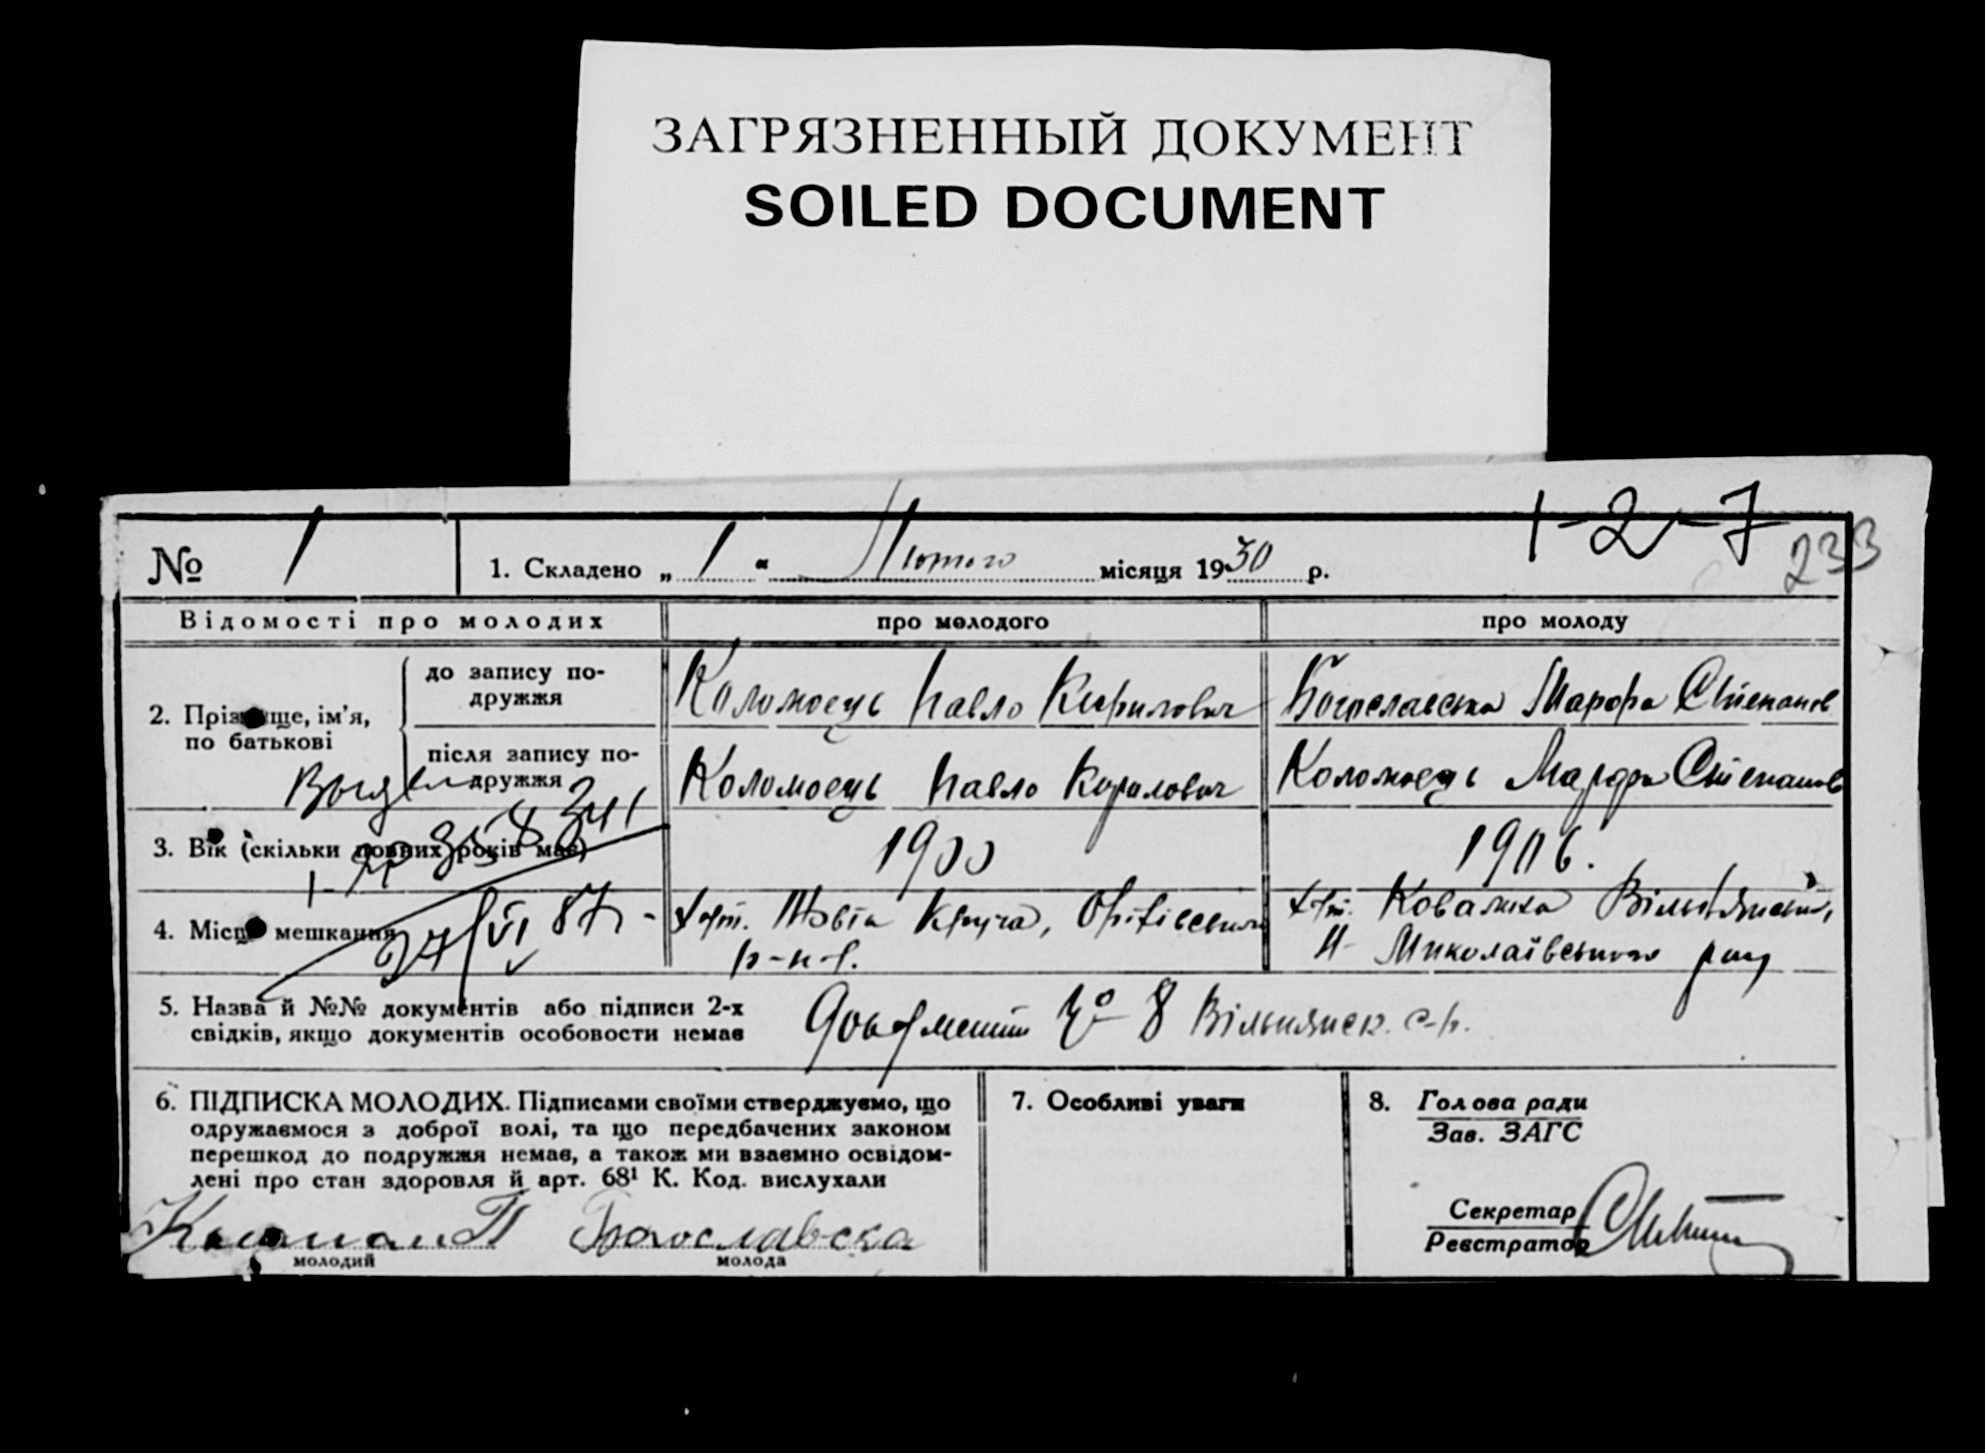 ЗАГРЯЗНЕННЫЙ ДОКУМЕНТ
SOILED DOCUMENT
1-2-7
233
№ 1
1. Складено „ 1 “ Лютого місяця 1930 р.
Відомості про молодих
про молодого
про молоду
2. Прізвище, ім’я, по батькові
до запису по-
дружжя
Коломоець Павло Кирилович
Богославська Марфа Степанов
після запису по-
дружжя
Коломоець Павло Кирилович
Коломоець Марфа Степанов
3. Вік (скільки повних років має)
1900
1906.
4. Місце мешкання
хут. Жовта Круча, Оріхівський
р-н-у.
хут. Ковалиха Вільнянський,
Н-Миколаївського рну
24/VI 87г-
5. Назва й №№ документів або підписи 2-х
свідків, якщо документів особовости немає
Документ № 8 Вільнянск. с-р.
6. ПІДПИСКА МОЛОДИХ. Підписами своїми стверджуємо, що
одружаємося з доброї волі, та що передбачених законом
перешкод до подружжя немає, а також ми взаємно освідом-
лені про стан здоровля й арт. 68¹ К. Код. вислухали
Богославска
молодий
молода
7. Особливі уваги
8. Голова ради
Зав. ЗАГС
Секретар
Реєстратор